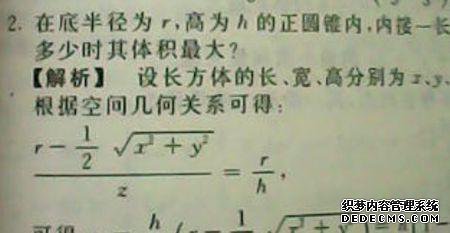 2. 在底半径为 r,高为 h 的正圆锥内,内接一长
多少时其体积最大?
【解析】 设长方体的长、宽、高分别为 x、y、
根据空间几何关系可得:
(r − 1/2 √(x² + y²)) / z = r/h,
可得 h (r − 1 √x² + y²) =
织梦内容管理系统
DEDECMS.COM